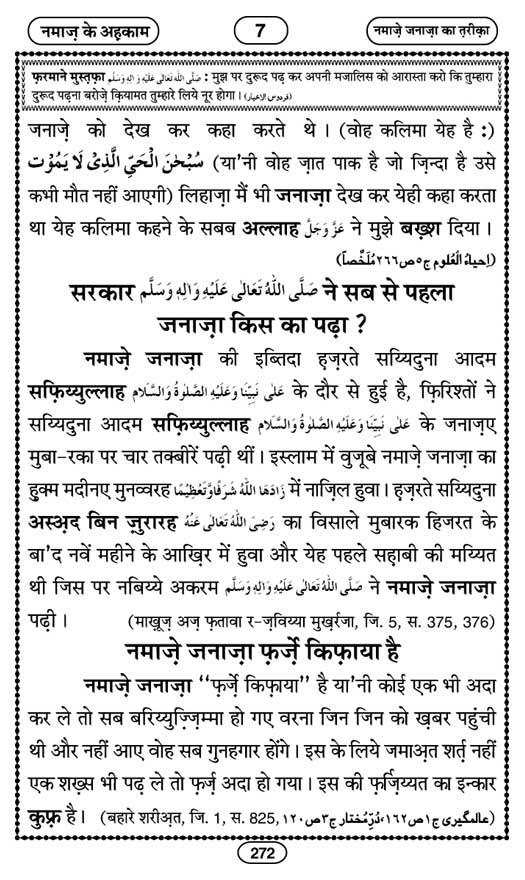 नमाज़ के अहकाम
7
नमाज़े जनाज़ा का त़रीक़ा
फ़रमाने मुस्त़फ़ा صَلَّى اللهُ تَعَالٰى عَلَيْهِ وَاٰلِهٖ وَسَلَّم : मुझ पर दुरूद पढ़ कर अपनी मजालिस को आरास्ता करो कि तुम्हारा
दुरूद पढ़ना बरोज़े क़ियामत तुम्हारे लिये नूर होगा । (فردوس الاخبار)
जनाज़े को देख कर कहा करते थे । (वोह कलिमा येह है :)
سُبْحٰنَ الْحَيِّ الَّذِيْ لَا يَمُوْت (या'नी वोह ज़ात पाक है जो ज़िन्दा है उसे
कभी मौत नहीं आएगी) लिहाज़ा मैं भी जनाज़ा देख कर येही कहा करता
था येह कलिमा कहने के सबब अल्लाह عَزَّوَجَلَّ ने मुझे बख़्श दिया ।
(اِحياءُ الْعُلوم ج٥ص٢٦٦مُلَخَّصاً)
सरकार صَلَّى اللهُ تَعَالٰى عَلَيْهِ وَاٰلِهٖ وَسَلَّم ने सब से पहला
जनाज़ा किस का पढ़ा ?
नमाज़े जनाज़ा की इब्तिदा ह़ज़रते सय्यिदुना आदम
सफ़िय्युल्लाह عَلٰى نَبِيِّنَا وَعَلَيْهِ الصَّلٰوةُ وَالسَّلَام के दौर से हुई है, फ़िरिश्तों ने
सय्यिदुना आदम सफ़िय्युल्लाह عَلٰى نَبِيِّنَا وَعَلَيْهِ الصَّلٰوةُ وَالسَّلَام के जनाज़ए
मुबा-रका पर चार तक्बीरें पढ़ी थीं । इस्लाम में वुजूबे नमाज़े जनाज़ा का
हुक्म मदीनए मुनव्वरह زَادَهَا اللهُ شَرَفًاوَّتَعْظِيْمًا में नाज़िल हुवा । ह़ज़रते सय्यिदुना
अस्अ़द बिन ज़ुरारह رَضِىَ اللهُ تَعَالٰى عَنْهُ का विसाले मुबारक हिजरत के
बा'द नवें महीने के आख़िर में हुवा और येह पहले सह़ाबी की मय्यित
थी जिस पर नबिय्ये अकरम صَلَّى اللهُ تَعَالٰى عَلَيْهِ وَاٰلِهٖ وَسَلَّم ने नमाज़े जनाज़ा
पढ़ी । (माख़ूज़ अज़ फ़तावा र-ज़विय्या मुख़र्रजा, जि. 5, स. 375, 376)
नमाज़े जनाज़ा फ़र्ज़े किफ़ाया है
नमाज़े जनाज़ा ‘‘फ़र्ज़े किफ़ाया’’ है या'नी कोई एक भी अदा
कर ले तो सब बरिय्युज़्ज़िम्मा हो गए वरना जिन जिन को ख़बर पहुंची
थी और नहीं आए वोह सब गुनहगार होंगे । इस के लिये जमाअ़त शर्त़ नहीं
एक शख़्स भी पढ़ ले तो फ़र्ज़ अदा हो गया । इस की फ़र्ज़िय्यत का इन्कार
कुफ़्र है । (बहारे शरीअ़त, जि. 1, स. 825, عالمگیری ج١ص١٦٢،دُرِّمُختار ج٣ص١٢٠)
272